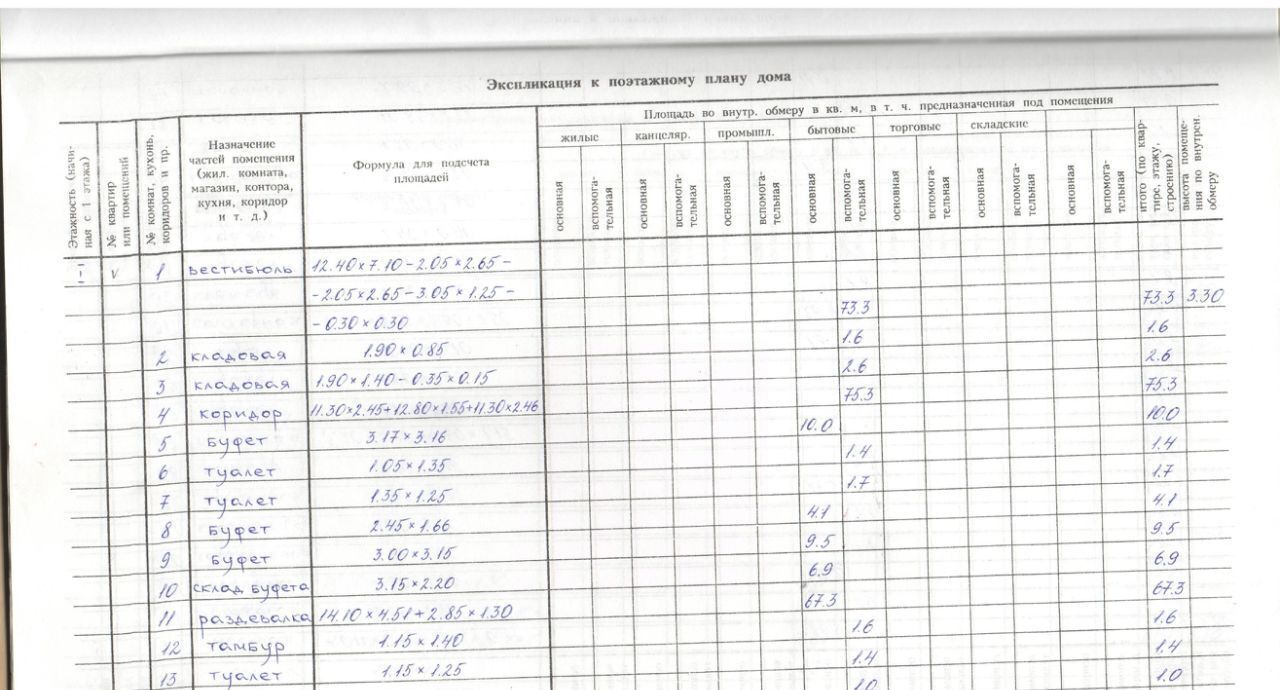 Экспликация к поэтажному плану дома
Этажность (начиная с 1 этажа)
№ квартир или помещений
№ комнат, кухонь, коридоров и пр.
Назначение
частей помещения
(жил. комната,
магазин, контора,
кухня, коридор
и т. д.)
Формула для подсчета
площадей
Площадь во внутр. обмеру в кв. м, в т. ч. предназначенная под помещения
жилые канцеляр. промышл. бытовые торговые складские
основная вспомога-тельная основная вспомога-тельная основная вспомога-тельная основная вспомога-тельная основная вспомога-тельная основная вспомога-тельная основная вспомога-тельная
итого (по квартире, этажу, строению)
высота помещения по внутрен. обмеру
I V 1 вестибюль 12.40×7.10−2.05×2.65−
−2.05×2.65−3.05×1.25−
−0.30×0.30 73.3 73.3 3.30
2 кладовая 1.90×0.85 1.6 1.6
3 кладовая 1.90×1.40−0.35×0.15 2.6 2.6
4 коридор 11.30×2.45+12.80×1.55+11.30×2.46 75.3 75.3
5 буфет 3.17×3.16 10.0 10.0
6 туалет 1.05×1.35 1.4 1.4
7 туалет 1.35×1.25 1.7 1.7
8 буфет 2.45×1.66 4.1 4.1
9 буфет 3.00×3.15 9.5 9.5
10 склад буфета 3.15×2.20 6.9 6.9
11 раздевалка 14.10×4.51+2.85×1.30 67.3 67.3
12 тамбур 1.15×1.40 1.6 1.6
13 туалет 1.15×1.25 1.4 1.4
1.0 1.0